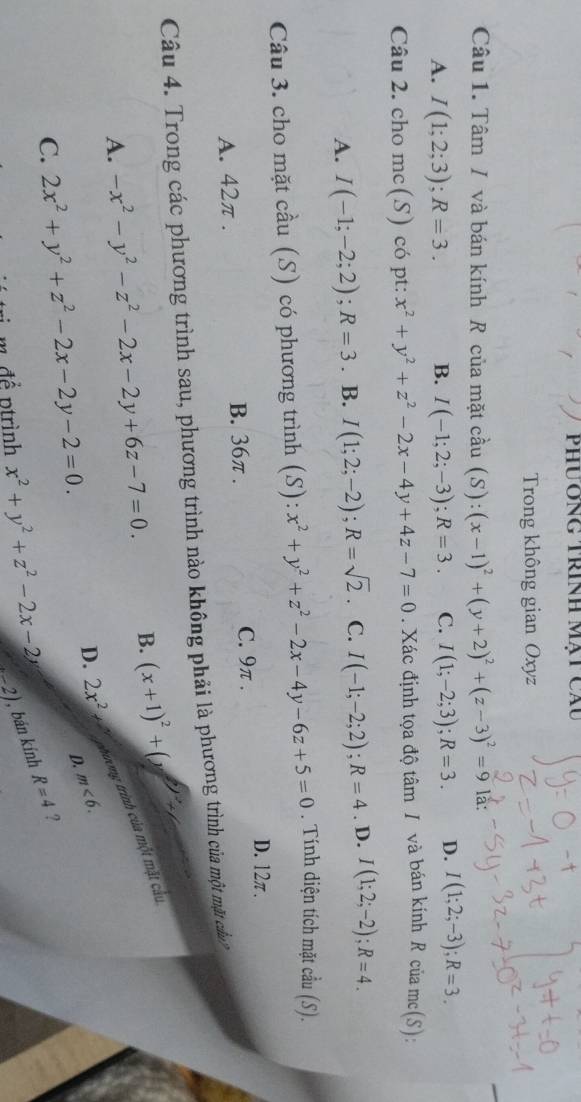 PHƯƠNG TRÌNH MẶT CẦU
Trong không gian Oxyz
y = 0 - t
z = -1 + 3t
y + t = 0
Câu 1. Tâm I và bán kính R của mặt cầu (S): (x-1)² + (y+2)² + (z-3)² = 9 là:
A. I(1;2;3); R = 3. B. I(-1;2;-3); R = 3. C. I(1;-2;3); R = 3. D. I(1;2;-3); R = 3.
Câu 2. cho mc(S) có pt: x² + y² + z² - 2x - 4y + 4z - 7 = 0. Xác định tọa độ tâm I và bán kính R của mc(S):
A. I(-1;-2;2); R = 3. B. I(1;2;-2); R = √2. C. I(-1;-2;2); R = 4. D. I(1;2;-2); R = 4.
Câu 3. cho mặt cầu (S) có phương trình (S): x² + y² + z² - 2x - 4y - 6z + 5 = 0. Tính diện tích mặt cầu (S).
A. 42π. B. 36π. C. 9π. D. 12π.
Câu 4. Trong các phương trình sau, phương trình nào không phải là phương trình của một mặt cầu?
A. -x² - y² - z² - 2x - 2y + 6z - 7 = 0. B. (x+1)² + (y
C. 2x² + y² + z² - 2x - 2y - 2 = 0. D. 2x² +
phương trình của một mặt cầu.
D. m < 6.
trị m để ptrình x² + y² + z² - 2x - 2y
-2), bán kính R = 4 ?